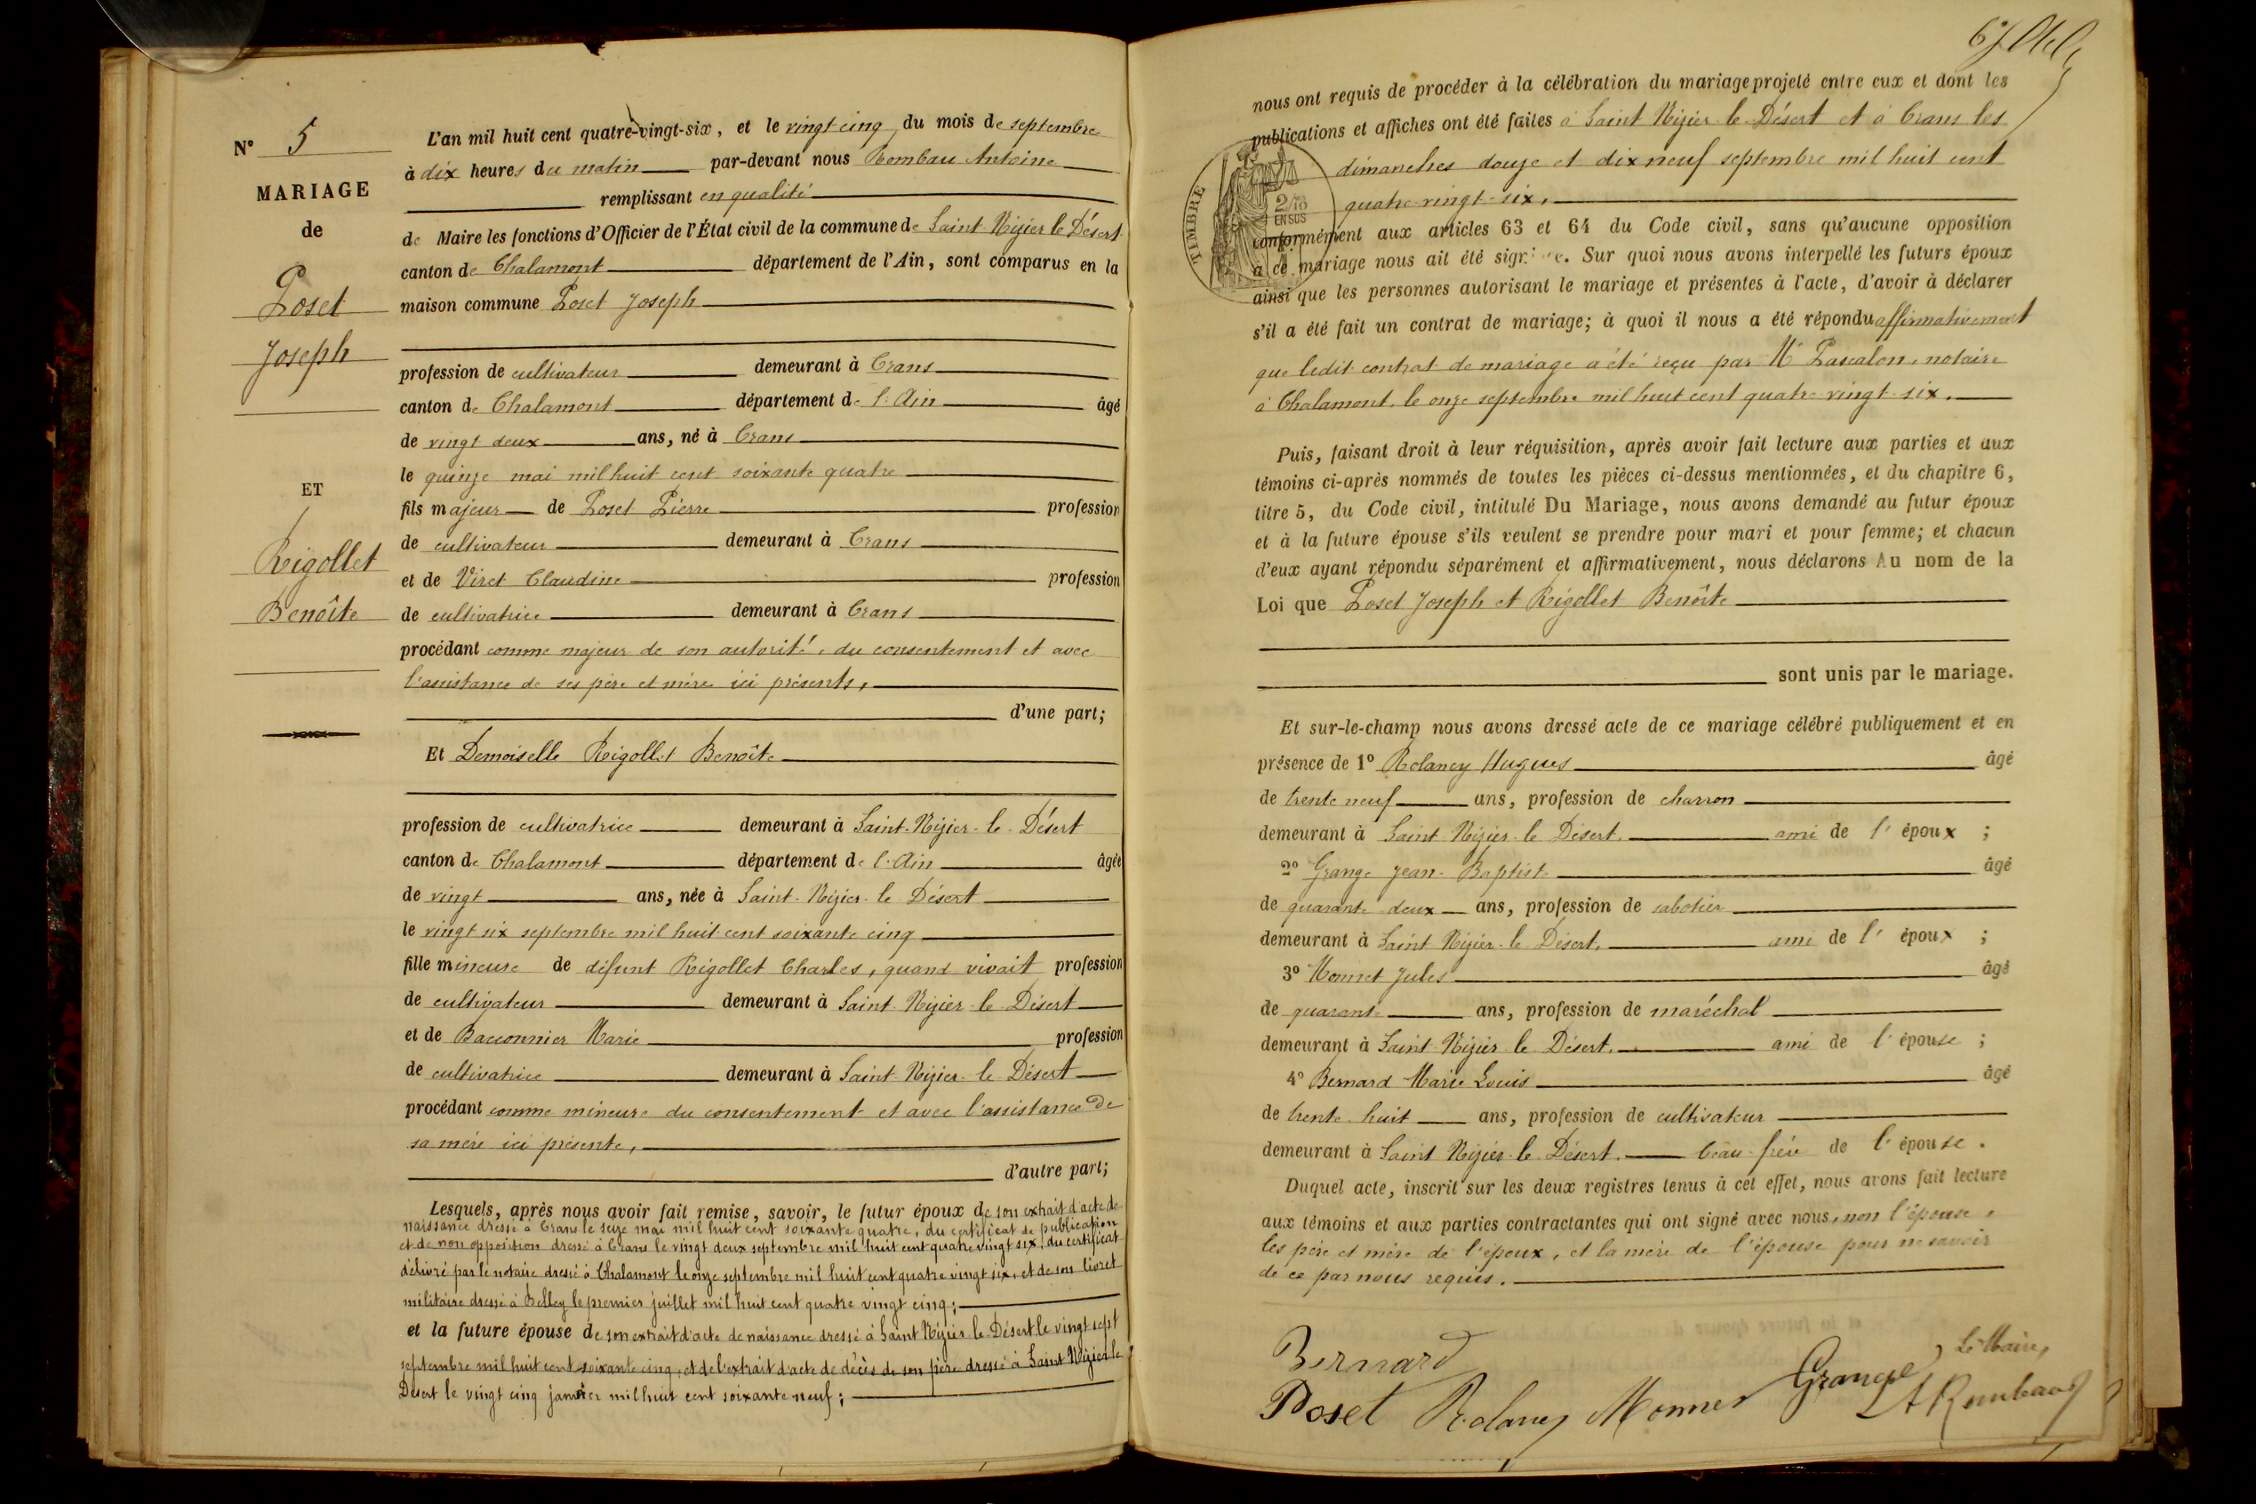 N° 5
MARIAGE
de
Poset
Joseph
ET
Rigollet
Benoîte
L'an mil huit cent quatre-vingt-six, et le vingt cinq du mois de septembre
à dix heures du matin par-devant nous Rombau Antoine
remplissant en qualité
de Maire les fonctions d'Officier de l'État civil de la commune de Saint Nizier le Désert
canton de Chalamont département de l'Ain, sont comparus en la
maison commune Poset Joseph
profession de cultivateur demeurant à Crans
canton de Chalamont département de l'Ain âgé
de vingt deux ans, né à Crans
le quinze mai mil huit cent soixante quatre
fils majeur de Poset Pierre profession
de cultivateur demeurant à Crans
et de Viret Claudine profession
de cultivatrice demeurant à Crans
procédant comme majeur de son autorité, du consentement et avec
l'assistance de ses père et mère ici présents,
d'une part;
Et Demoiselle Rigollet Benoîte
profession de cultivatrice demeurant à Saint-Nizier-le-Désert
canton de Chalamont département de l'Ain âgée
de vingt ans, née à Saint-Nizier-le Désert
le vingt six septembre mil huit cent soixante cinq
fille mineure de défunt Rigollet Charles, quand vivait profession
de cultivateur demeurant à Saint-Nizier-le Désert
et de Bacconnier Marie profession
de cultivatrice demeurant à Saint-Nizier-le Désert
procédant comme mineure du consentement et avec l'assistance de
sa mère ici présente,
d'autre part;
Lesquels, après nous avoir fait remise, savoir, le futur époux de son extrait d'acte de
naissance dressé à Crans le seize mai mil huit cent soixante quatre, du certificat de publication
et de non opposition dressé à Crans le vingt deux septembre mil huit cent quatre vingt six, du certificat
délivré par le notaire dressé à Chalamont le onze septembre mil huit cent quatre vingt six, et de son livret
militaire dressé à Belley le premier juillet mil huit cent quatre vingt cinq;
et la future épouse de son extrait d'acte de naissance dressé à Saint Nizier le Désert le vingt sept
septembre mil huit cent soixante cinq, et de l'extrait d'acte de décès de son père dressé à Saint Nizier le
Désert le vingt cinq janvier mil huit cent soixante neuf;
nous ont requis de procéder à la célébration du mariage projeté entre eux et dont les
publications et affiches ont été faites à Saint Nizier le Désert et à Crans les
dimanches douze et dix neuf septembre mil huit cent
quatre-vingt-six,
TIMBRE
2/10
EN SUS
conformément aux articles 63 et 64 du Code civil, sans qu'aucune opposition
à ce mariage nous ait été signifiée. Sur quoi nous avons interpellé les futurs époux
ainsi que les personnes autorisant le mariage et présentes à l'acte, d'avoir à déclarer
s'il a été fait un contrat de mariage; à quoi il nous a été répondu affirmativement
que ledit contrat de mariage a été reçu par Me Pascalon, notaire
à Chalamont, le onze septembre mil huit cent quatre-vingt-six.
Puis, faisant droit à leur réquisition, après avoir fait lecture aux parties et aux
témoins ci-après nommés de toutes les pièces ci-dessus mentionnées, et du chapitre 6,
titre 5, du Code civil, intitulé Du Mariage, nous avons demandé au futur époux
et à la future épouse s'ils veulent se prendre pour mari et pour femme; et chacun
d'eux ayant répondu séparément et affirmativement, nous déclarons Au nom de la
Loi que Poset Joseph et Rigollet Benoîte
sont unis par le mariage.
Et sur-le-champ nous avons dressé acte de ce mariage célébré publiquement et en
présence de 1° Rolancy Hugues âgé
de trente neuf ans, profession de charron
demeurant à Saint Nizier le Désert. ami de l'époux;
2° Grange Jean-Baptiste âgé
de quarante deux ans, profession de sabotier
demeurant à Saint Nizier-le Désert. ami de l'époux;
3° Monnet Jules âgé
de quarante ans, profession de maréchal
demeurant à Saint Nizier le Désert. ami de l'épouse;
4° Bernard Marie Louis âgé
de trente huit ans, profession de cultivateur
demeurant à Saint Nizier le Désert. beau-frère de l'épouse.
Duquel acte, inscrit sur les deux registres tenus à cet effet, nous avons fait lecture
aux témoins et aux parties contractantes qui ont signé avec nous, non l'épouse,
les père et mère de l'époux, et la mère de l'épouse pour ne savoir
de ce par nous requis.
Bernard
Le Maire,
Poset Rolancy Monnet Grange A Rombau